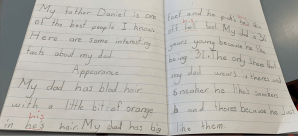 My father Daniel is one
of the best people I know
Here are some interesting
facts about my dad.
Appearance
My dad has blad hair
with a little bit of orange
his
in he's hair. My dad has big
feet and he picks the skin
off his feet. My dad is 31
years young because he like
being 31. The only shoes that
my dad wears is theres and
sneaker he likes sneakers
and theres because he just
like them